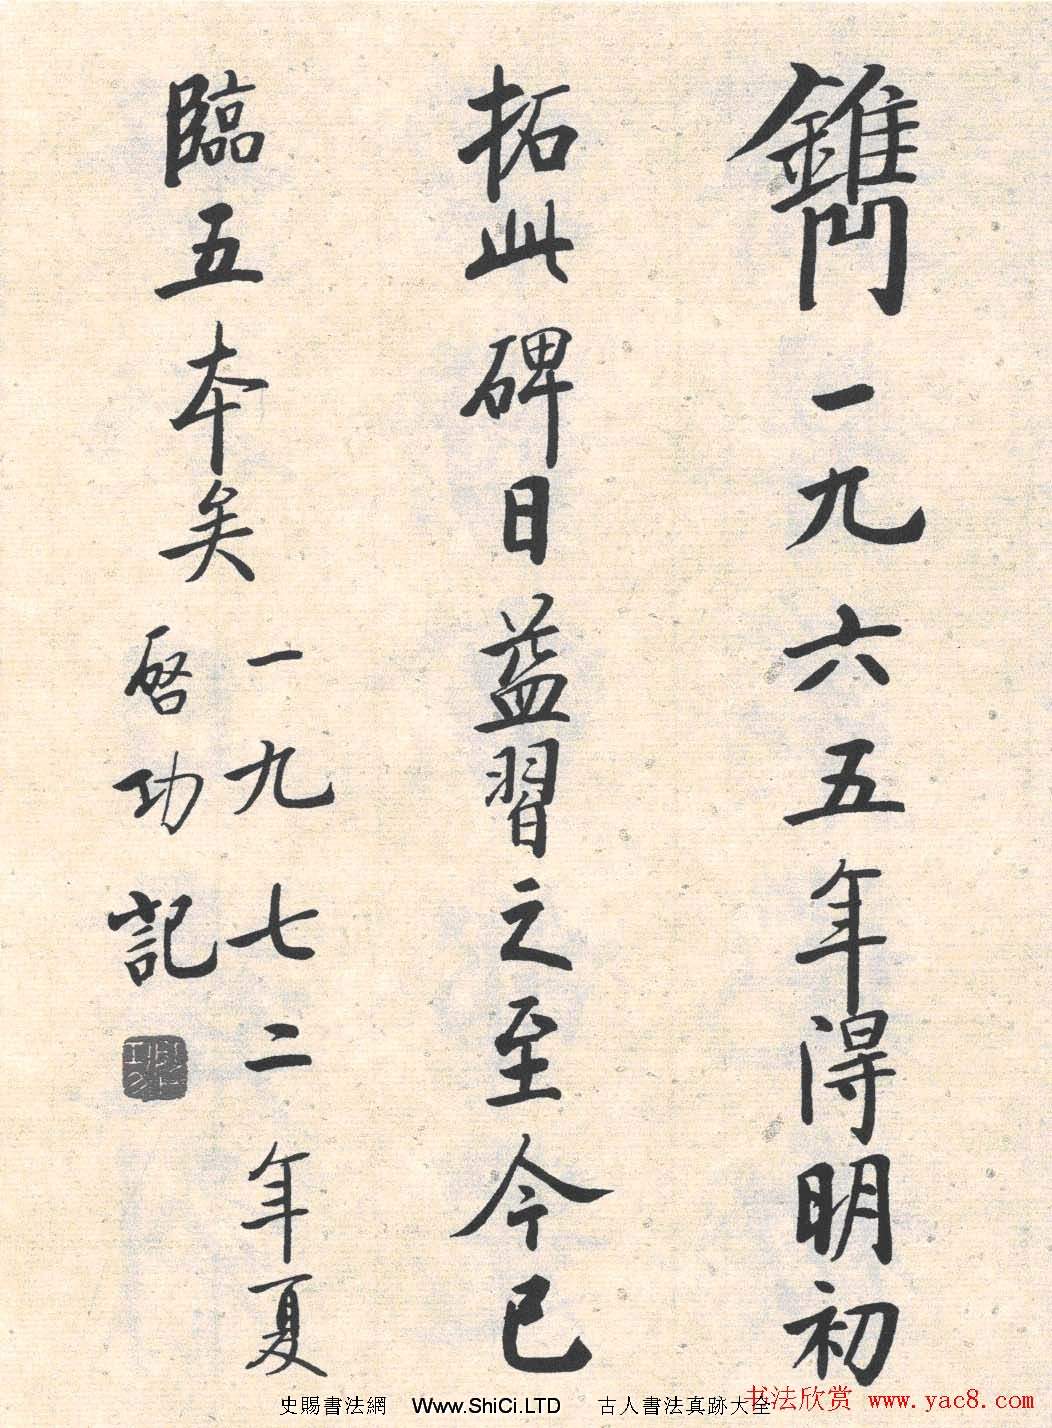 鐫一九六五年得明初
拓此碑日益習之至今已
臨五本矣
一九七二年夏
啓功記
史賜書法網 Www.ShiCi.LTD 古人書法真跡大全
书法欣赏 www.yac8.com